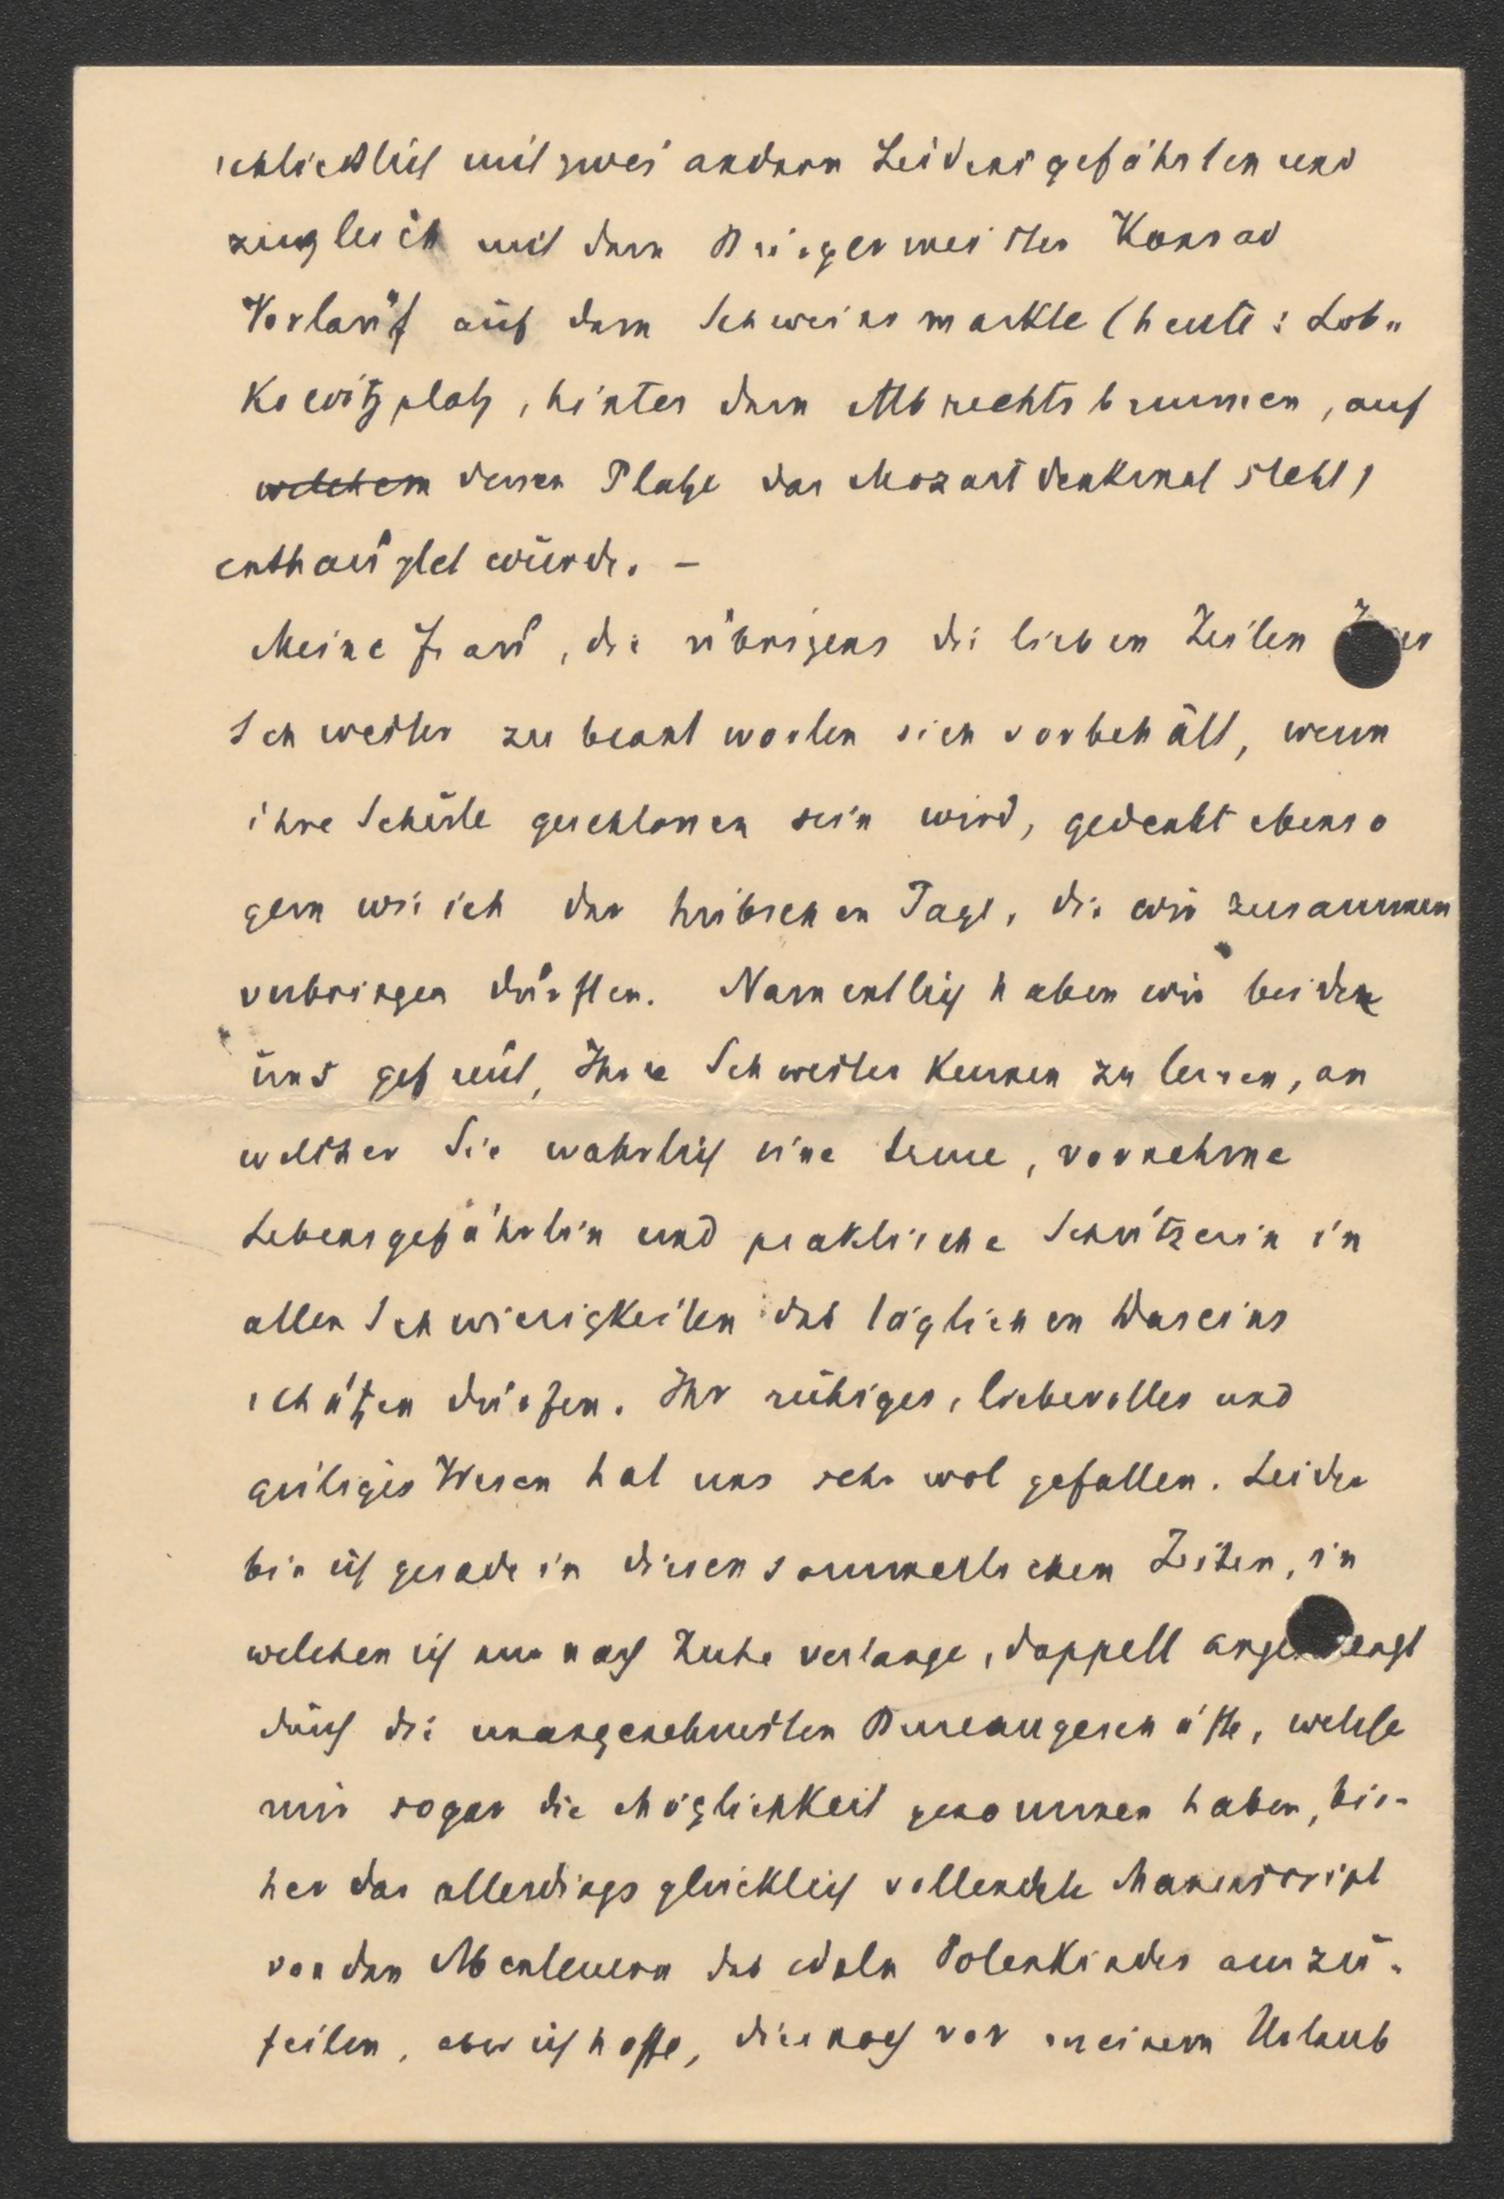 schließlich mit zwei andern Leidensgefährten und
zugleich mit dem Bürgermeister Konrad
Vorlauf auf dem Schweinsmarkte (heute: Lob-
kowitzplatz, hinter dem Albrechtsbrunnen, auf
welchem dessen Platze das Mozartdenkmal steht)
enthauptet wurde. –
Meine Frau, die übrigens die lieben Zeilen Ihrer
Schwester zu beantworten sich vorbehält, wenn
ihre Schule geschlossen sein wird, gedenkt ebenso
gern wie ich der hübschen Tage, die wir zusammen
verbringen durften. Namentlich haben wir beide
uns gefreut, Ihre Schwester kennen zu lernen, an
welcher Sie wahrlich eine treue, vornehme
Lebensgefährtin und praktische Schützerin in
allen Schwierigkeiten des täglichen Daseins
schätzen dürfen. Ihr ruhiges, liebevolles und
gütiges Wesen hat uns sehr wol gefallen. Leider
bin ich gerade in diesen sommerlichen Zeiten, in
welchen ich nur nach Ruhe verlange, doppelt angestrengt
durch die unangenehmsten Bureaugeschäfte, welche
mir sogar die Möglichkeit genommen haben, bis-
her das allerdings glücklich vollendete Manuscript
von den Abenteuern des edeln Polenkindes auszu-
feilen, aber ich hoffe, dies noch vor meinem Urlaub